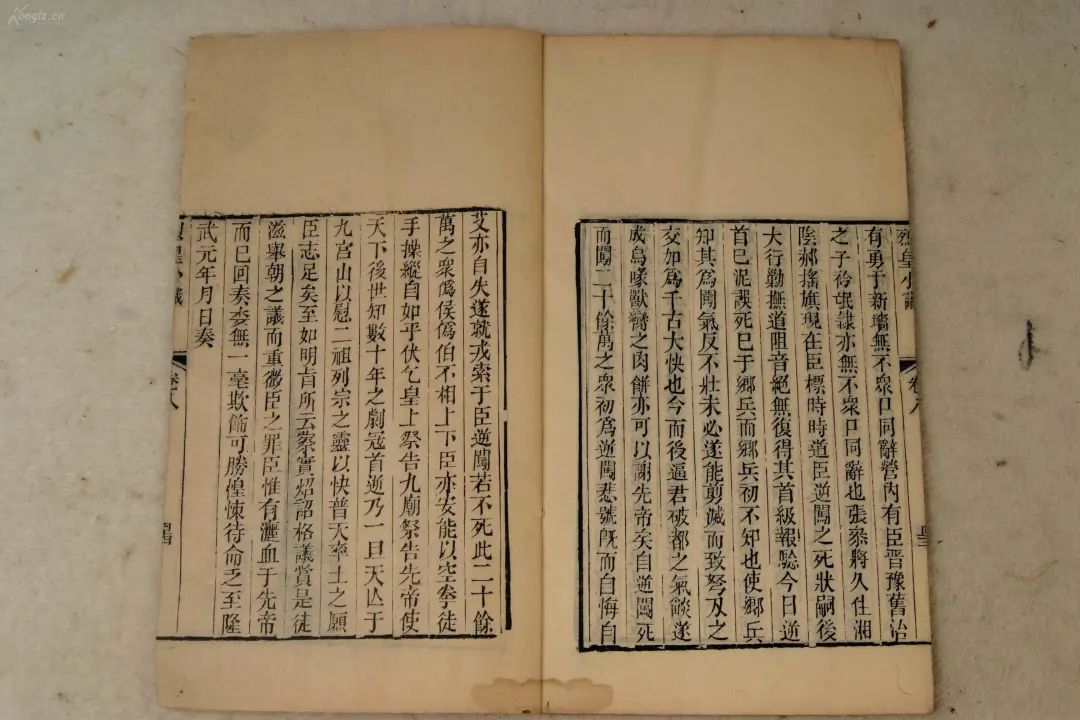 烈皇小識
卷八
有勇于新墻無不衆口同辭營內有臣晉豫舊治
之子衿氓隷亦無不衆口同辭也張叅將久住湘
陰郝搖旗現在臣標時時道臣逆闖之死狀嗣後
大行勦撫道阻音絕無復得其首級報驗今日逆
首已泥誤死巳于鄉兵而鄉兵初不知也使鄉兵
知其爲闖氣反不壯未必遂能剪滅而致弩刃之
交加爲千古大快也今而後逼君破都之氣燄遂
成鳥喙獸臠之肉餅亦可以謝先帝矣自逆闖死
而闖二十餘萬之衆初爲逆闖悲號旣而自悔自
艾亦自失遂就戎索于臣逆闖若不死此二十餘
萬之衆爲侯爲伯不相上下臣亦安能以空拳徒
手操縱自如乎伏乞皇上祭告九廟祭告先帝使
天下後世知數十年之劇冦首逆乃一旦天亾于
九宮山以慰二祖列宗之靈以快普天率土之願
臣志足矣至如明旨所云察實炤詔格議賞是徒
滋舉朝之議而重微臣之罪臣惟有灑血于先帝
而已回奏委無一毫欺飾可勝惶悚待命之至隆
武元年月日奏
烈皇小識
卷八